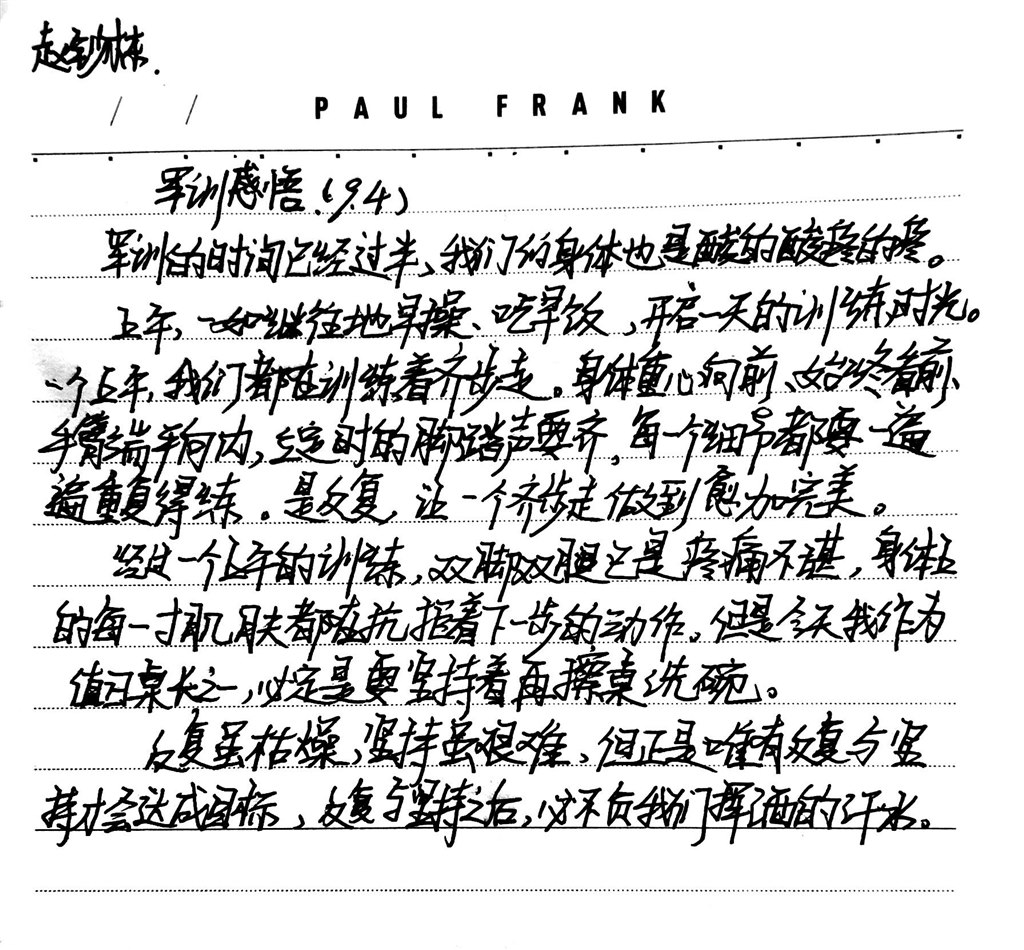 赵钞栋.
/ / PAUL FRANK
军训感悟.(9.4)
军训的时间已经过半、我们的身体也是酸的酸疼的疼。
上午,一如继往地早操、吃早饭,开启一天的训练时光。
一个上午,我们都在训练着齐步走。身体重心向前、始终看前、
手臂端平向内,立定时的脚踏声要齐,每一个细节都要一遍
遍重复得练。是反复,让一个齐步走做到愈加完美。
经过一个上午的训练,双脚双腿已是疼痛不堪,身体上
的每一寸肌肤都在抗拒着下一步的动作。但是今天我作为
值日桌长之一,必定是要坚持着再擦桌洗碗。
反复虽枯燥,坚持虽艰难,但正是唯有反复与坚
持才会达成目标,反复与坚持之后,必不负我们挥洒的汗水。